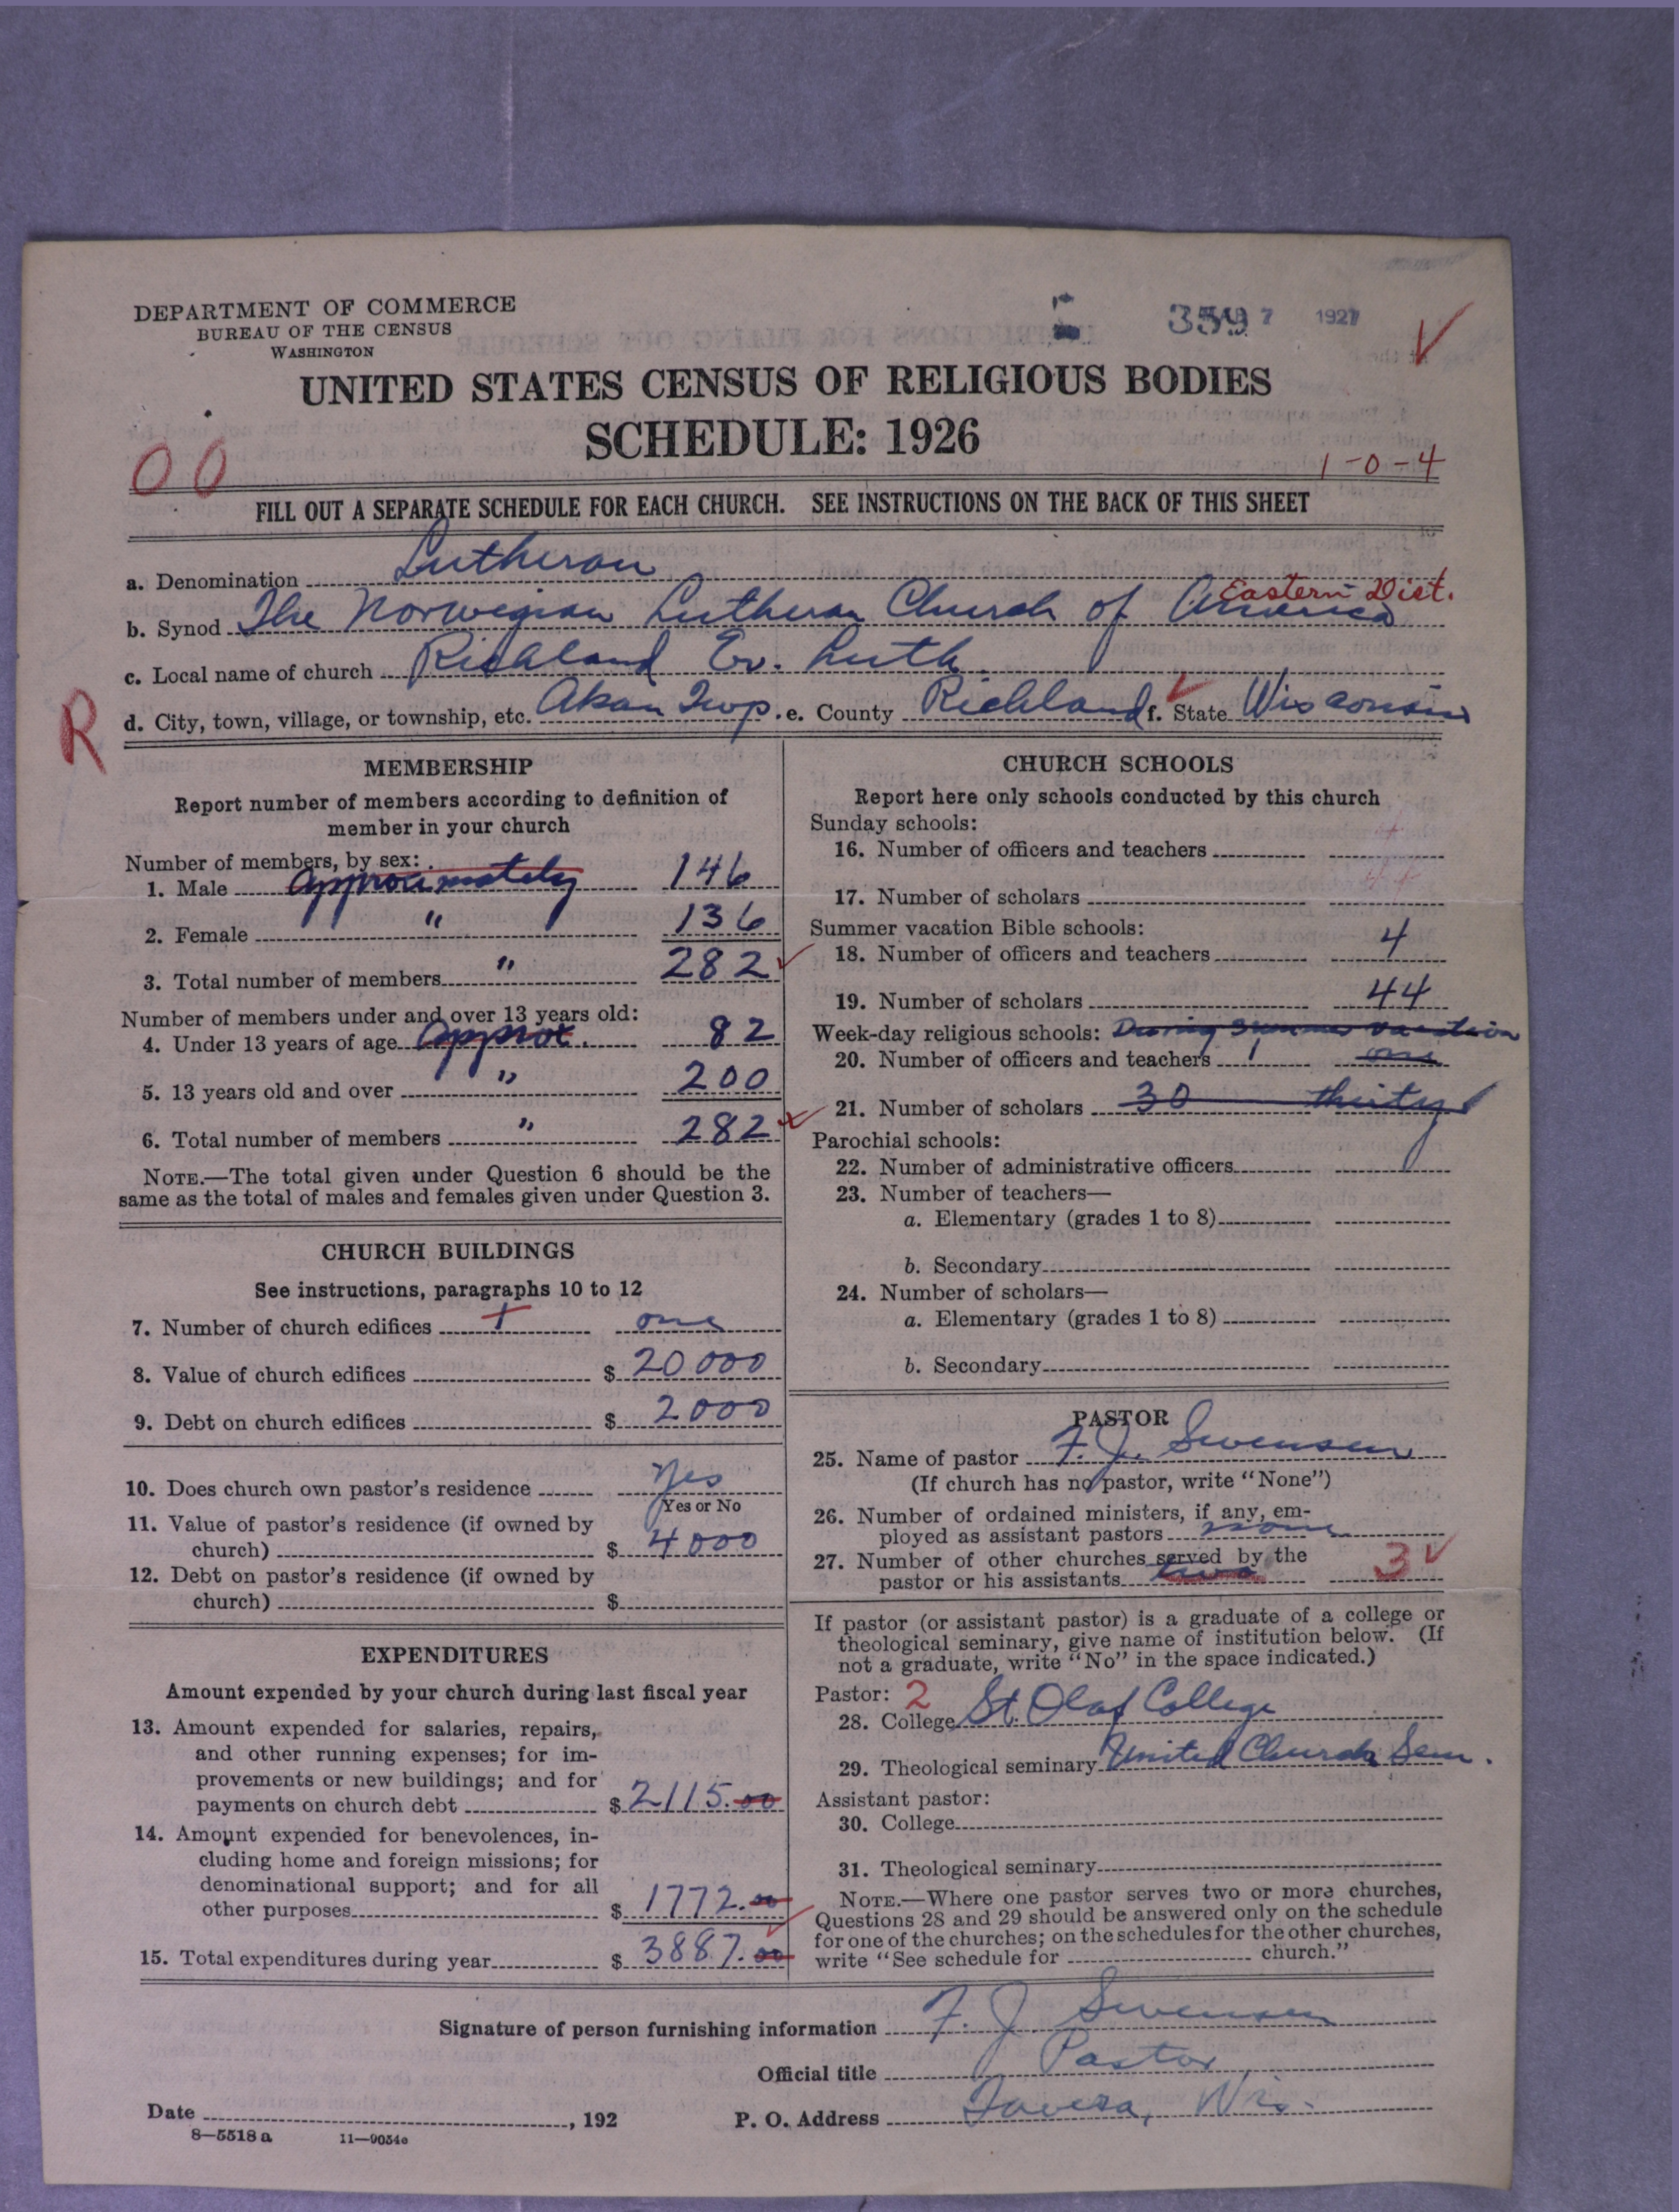 DEPARTMENT OF COMMERCE
BUREAU OF THE CENSUS
WASHINGTON
359 7 1927
UNITED STATES CENSUS OF RELIGIOUS BODIES
SCHEDULE: 1926
00
1-0-4
FILL OUT A SEPARATE SCHEDULE FOR EACH CHURCH. SEE INSTRUCTIONS ON THE BACK OF THIS SHEET
a. Denomination Lutheran
Eastern Dist.
b. Synod The Norwegian Lutheran Church of America
c. Local name of church Richland Ev. Luth.
R
d. City, town, village, or township, etc. Akan Twp. e. County Richland f. State Wisconsin
MEMBERSHIP
Report number of members according to definition of
member in your church
Number of members, by sex:
1. Male approximately 146
2. Female " 136
3. Total number of members " 282
Number of members under and over 13 years old:
4. Under 13 years of age approx. 82
5. 13 years old and over " 200
6. Total number of members " 282
NOTE.—The total given under Question 6 should be the
same as the total of males and females given under Question 3.
CHURCH BUILDINGS
See instructions, paragraphs 10 to 12
7. Number of church edifices 1 one
8. Value of church edifices $ 20000
9. Debt on church edifices $ 2000
10. Does church own pastor's residence Yes
Yes or No
11. Value of pastor's residence (if owned by
church) $ 4000
12. Debt on pastor's residence (if owned by
church) $
EXPENDITURES
Amount expended by your church during last fiscal year
13. Amount expended for salaries, repairs,
and other running expenses; for im-
provements or new buildings; and for
payments on church debt $ 2115.00
14. Amount expended for benevolences, in-
cluding home and foreign missions; for
denominational support; and for all
other purposes $ 1772.00
15. Total expenditures during year $ 3887.00
CHURCH SCHOOLS
Report here only schools conducted by this church
Sunday schools:
16. Number of officers and teachers
17. Number of scholars
Summer vacation Bible schools:
18. Number of officers and teachers 4
19. Number of scholars 44
Week-day religious schools: During Summer vacation
20. Number of officers and teachers 1 one
21. Number of scholars 30 thirty
Parochial schools:
22. Number of administrative officers
23. Number of teachers—
a. Elementary (grades 1 to 8)
b. Secondary
24. Number of scholars—
a. Elementary (grades 1 to 8)
b. Secondary
PASTOR
25. Name of pastor F. J. Swensen
(If church has no pastor, write "None")
26. Number of ordained ministers, if any, em-
ployed as assistant pastors none
27. Number of other churches served by the
pastor or his assistants two 3
If pastor (or assistant pastor) is a graduate of a college or
theological seminary, give name of institution below. (If
not a graduate, write "No" in the space indicated.)
Pastor: 2
28. College St. Olaf College
29. Theological seminary United Church Sem.
Assistant pastor:
30. College
31. Theological seminary
NOTE.—Where one pastor serves two or more churches,
Questions 28 and 29 should be answered only on the schedule
for one of the churches; on the schedules for the other churches,
write "See schedule for church."
Signature of person furnishing information F. J. Swensen
Official title Pastor
Date , 192 P. O. Address Wis.
8—5518 a 11—9034c